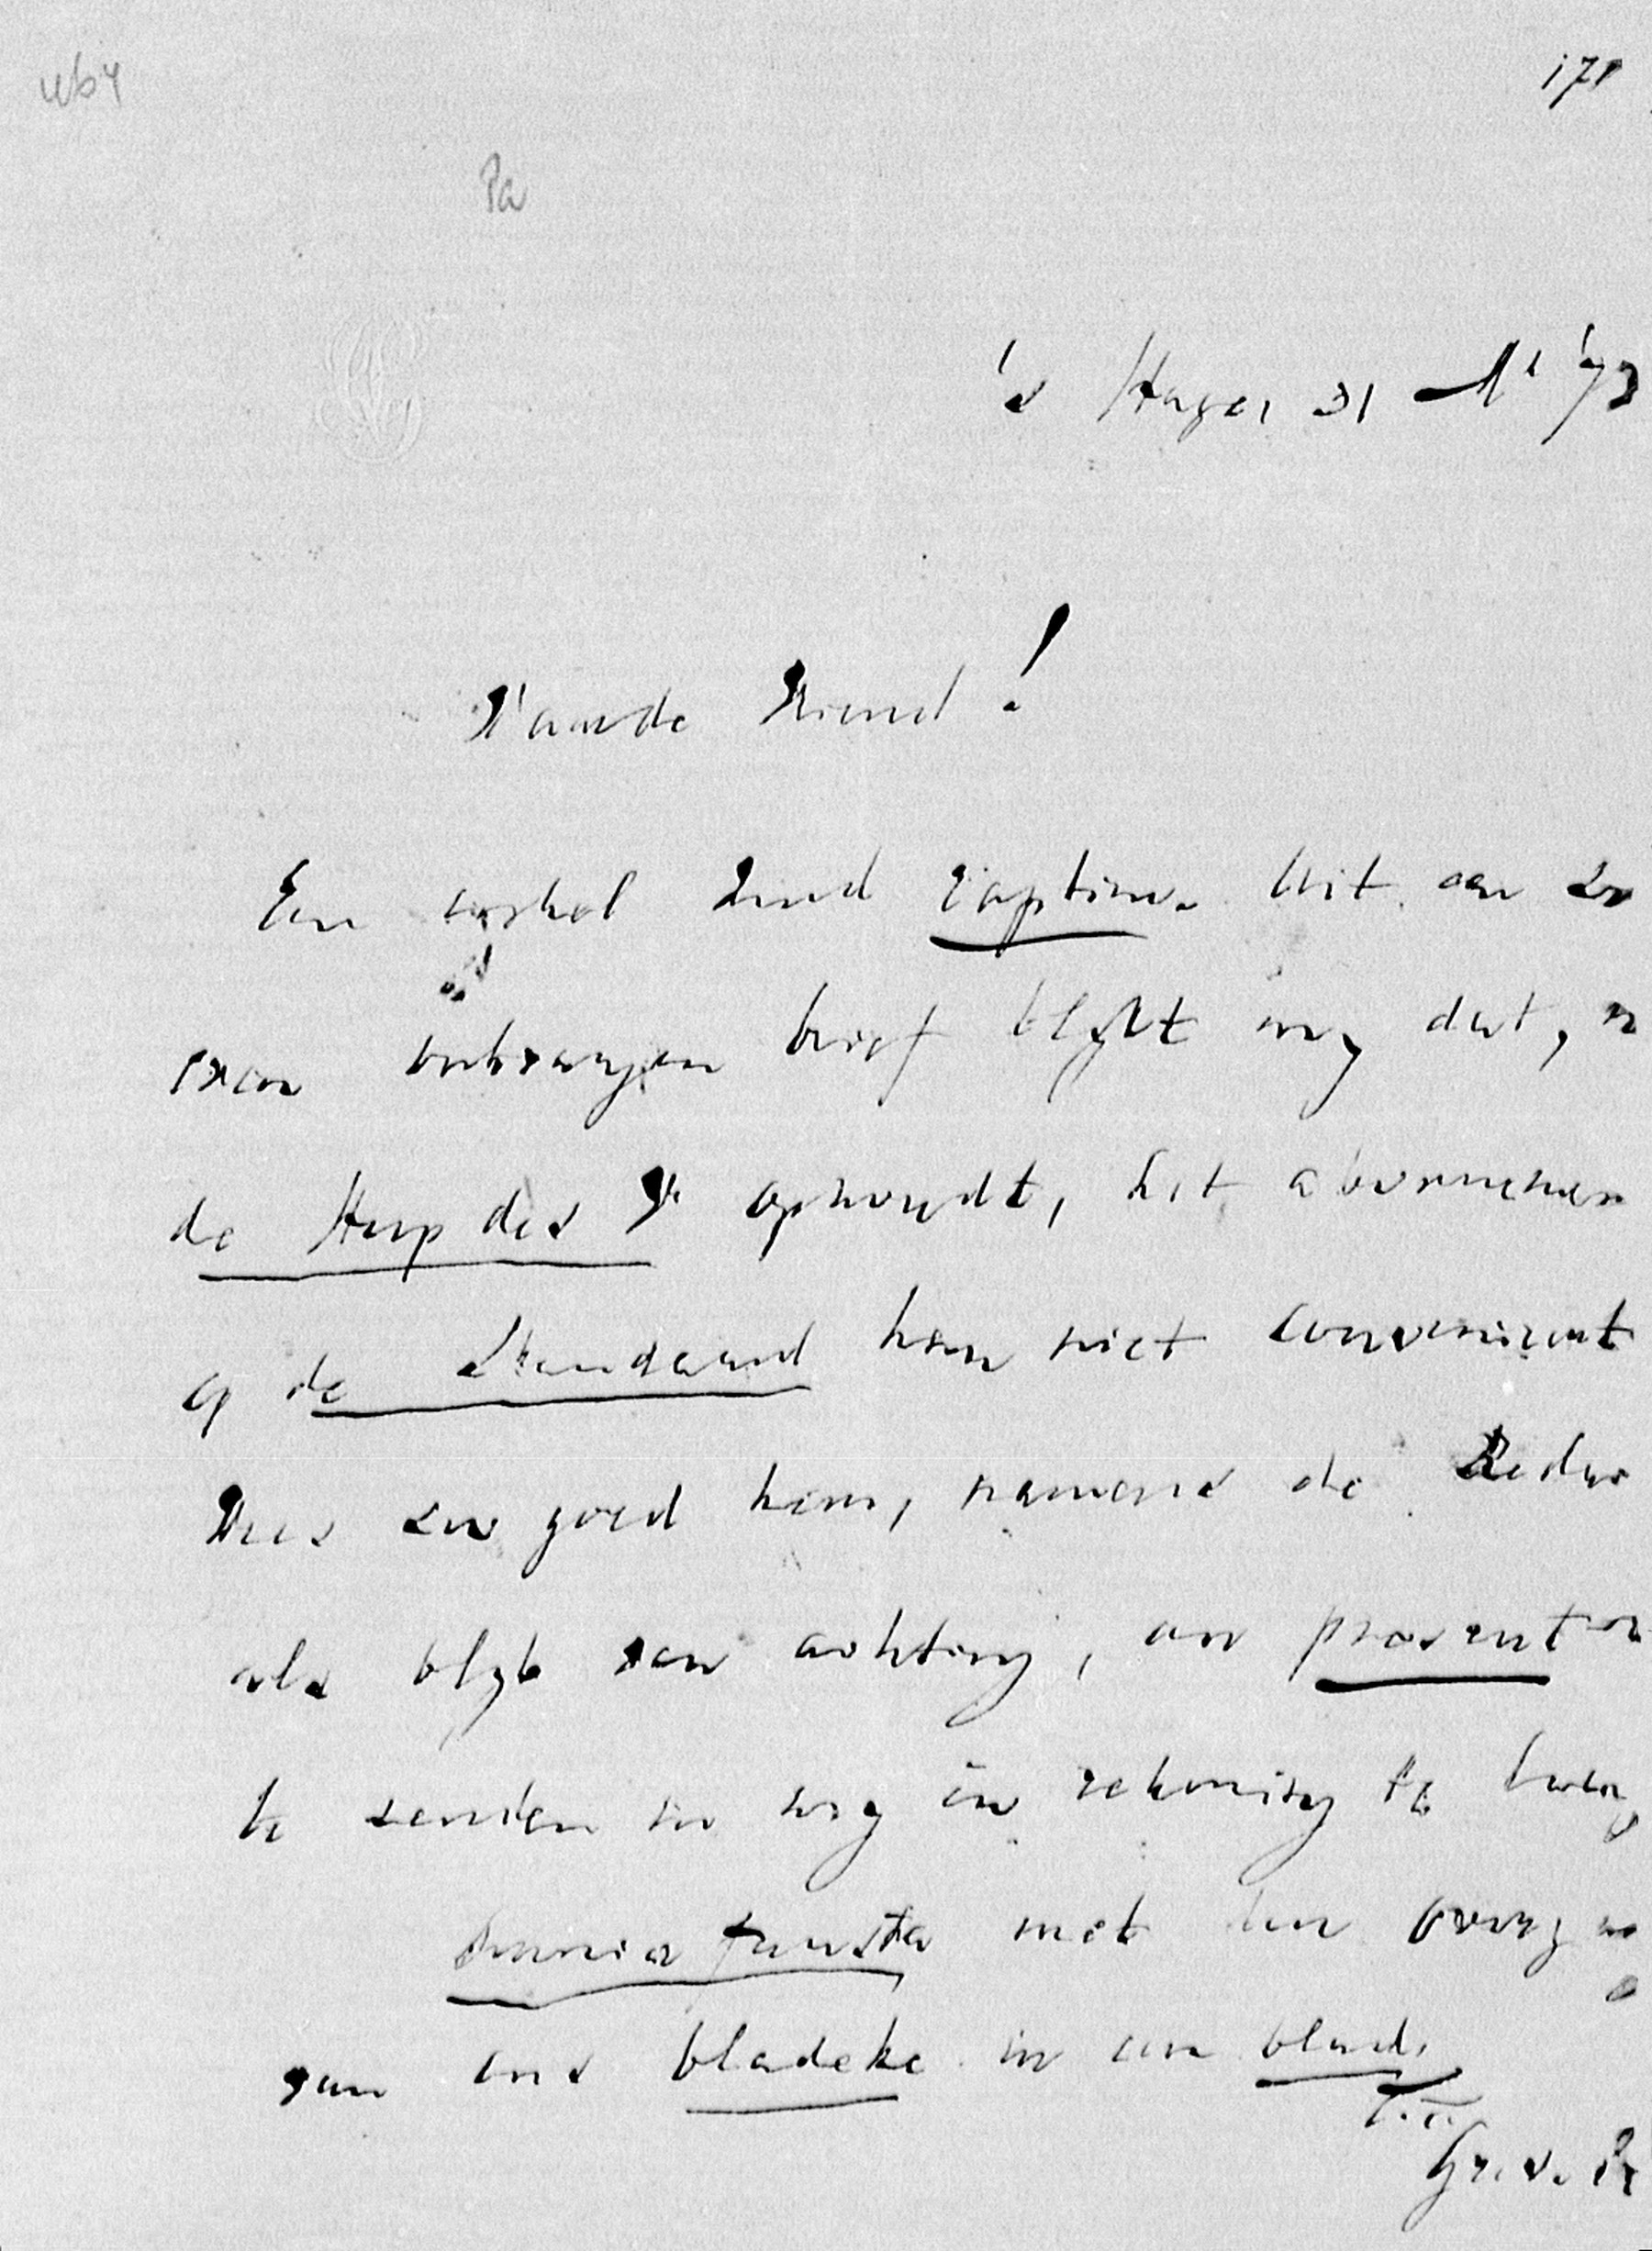 171
's Hage, 31 Mt '73
Waarde Vriend!
Een enkel woord raptim. Uit een zo
even ontvangen brief blijkt mij dat, n
de Heup des Vs ophoudt, het abonnemen
op de Standaard hem niet convenieert
Wees zoo goed hem, namens de Redac
als blijk van achting, een present ex
te zenden en mij in rekening te breng
Omnia fausta met den overga
van ons bladeke in een blad.
t.t.
Gr. v. Pr